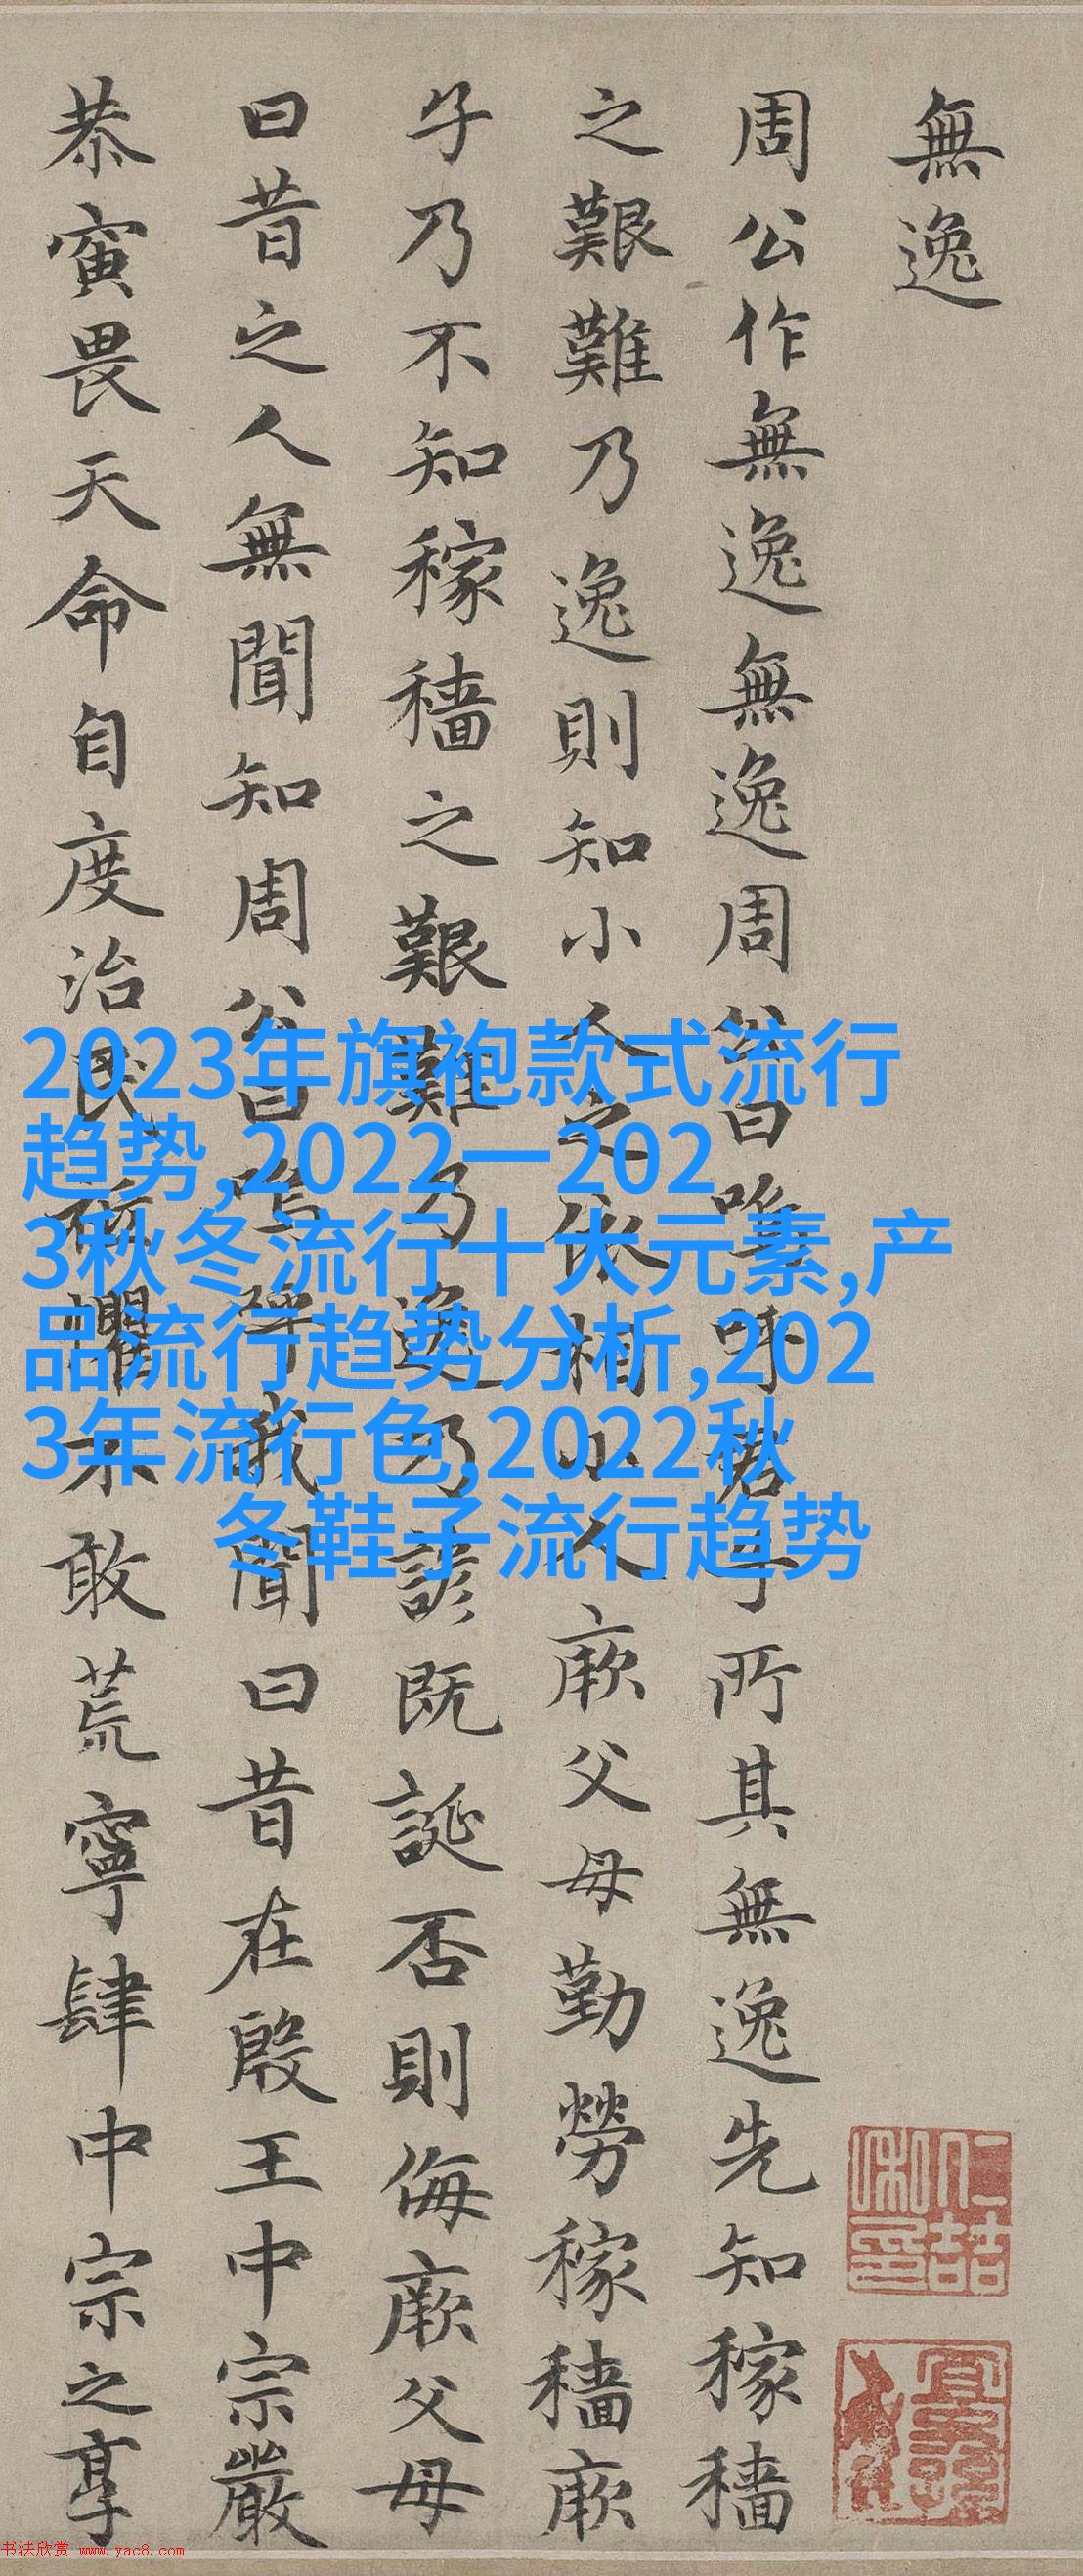 無逸
周公作無逸無逸周公曰嗚呼君子所其無逸先知稼穡
之艱難乃逸則知小人之依相小人厥父母勤勞稼穡厥
子乃不知稼穡之艱難乃逸乃諺既誕否則侮厥父母
曰昔之人無聞知周公曰嗚呼我聞曰昔在殷王中宗嚴
恭寅畏天命自度治民祗懼不敢荒寧肆中宗之享
2023年旗袍款式流行
趋势,2022一202
3秋冬流行十大元素,产
品流行趋势分析,202
3年流行色,2022秋
冬鞋子流行趋势
书法欣赏 www.yac8.com